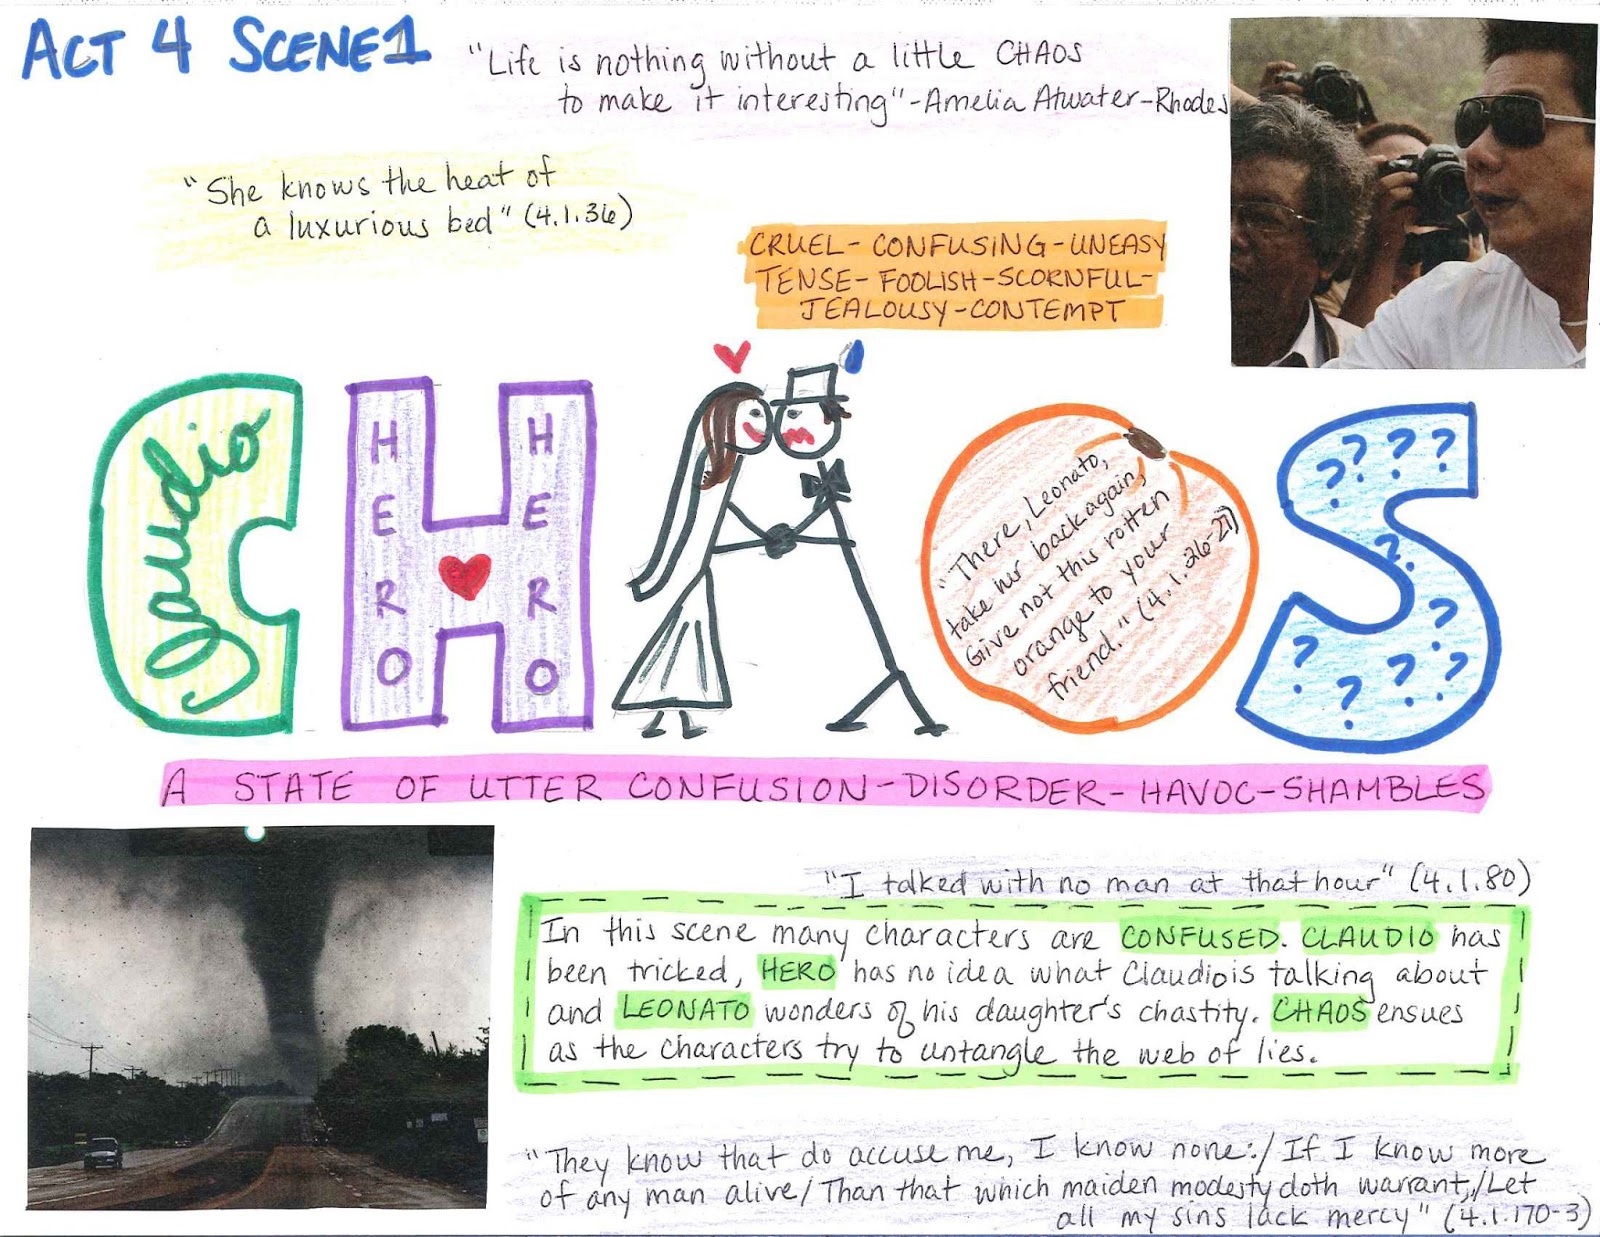 ACT 4 SCENE1
"Life is nothing without a little CHAOS
to make it interesting"-Amelia Atwater-Rhodes
"She knows the heat of
a luxurious bed" (4.1.36)
CRUEL- CONFUSING-UNEASY
TENSE- FOOLISH-SCORNFUL-
JEALOUSY-CONTEMPT
CHAOS
Claudio
HERO
HERO
"There, Leonato,
take her back again,
Give not this rotten
orange to your
friend." (4.1.26-27)
???? ? ? ? ? ? ? ?
A STATE OF UTTER CONFUSION-DISORDER-HAVOC-SHAMBLES
"I talked with no man at that hour" (4.1.80)
In this scene many characters are CONFUSED. CLAUDIO has
been tricked, HERO has no idea what Claudio is talking about
and LEONATO wonders of his daughter's chastity. CHAOS ensues
as the characters try to untangle the web of lies.
"They know that do accuse me, I know none:/If I know more
of any man alive/Than that which maiden modesty doth warrant,/Let
all my sins lack mercy" (4.1.170-3)